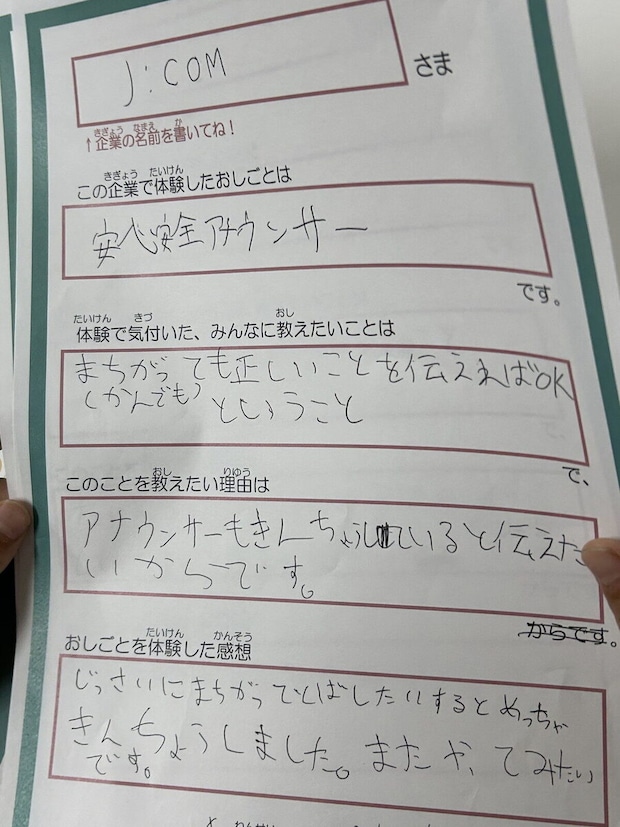 J:COM
さま
↑企業の名前を書いてね！
この企業で体験したおしごとは
安心安全アナウンサー
です。
体験で気付いた、みんなに教えたいことは
まちがっても正しいことを伝えればOK
(かんでも) ということ
で、
このことを教えたい理由は
アナウンサーもきんちょうしていると伝えた
いからです。
からです。
おしごとを体験した感想
じっさいにまちがってとばしたりすると めっちゃ
きんちょうしました。またやってみたい
です。